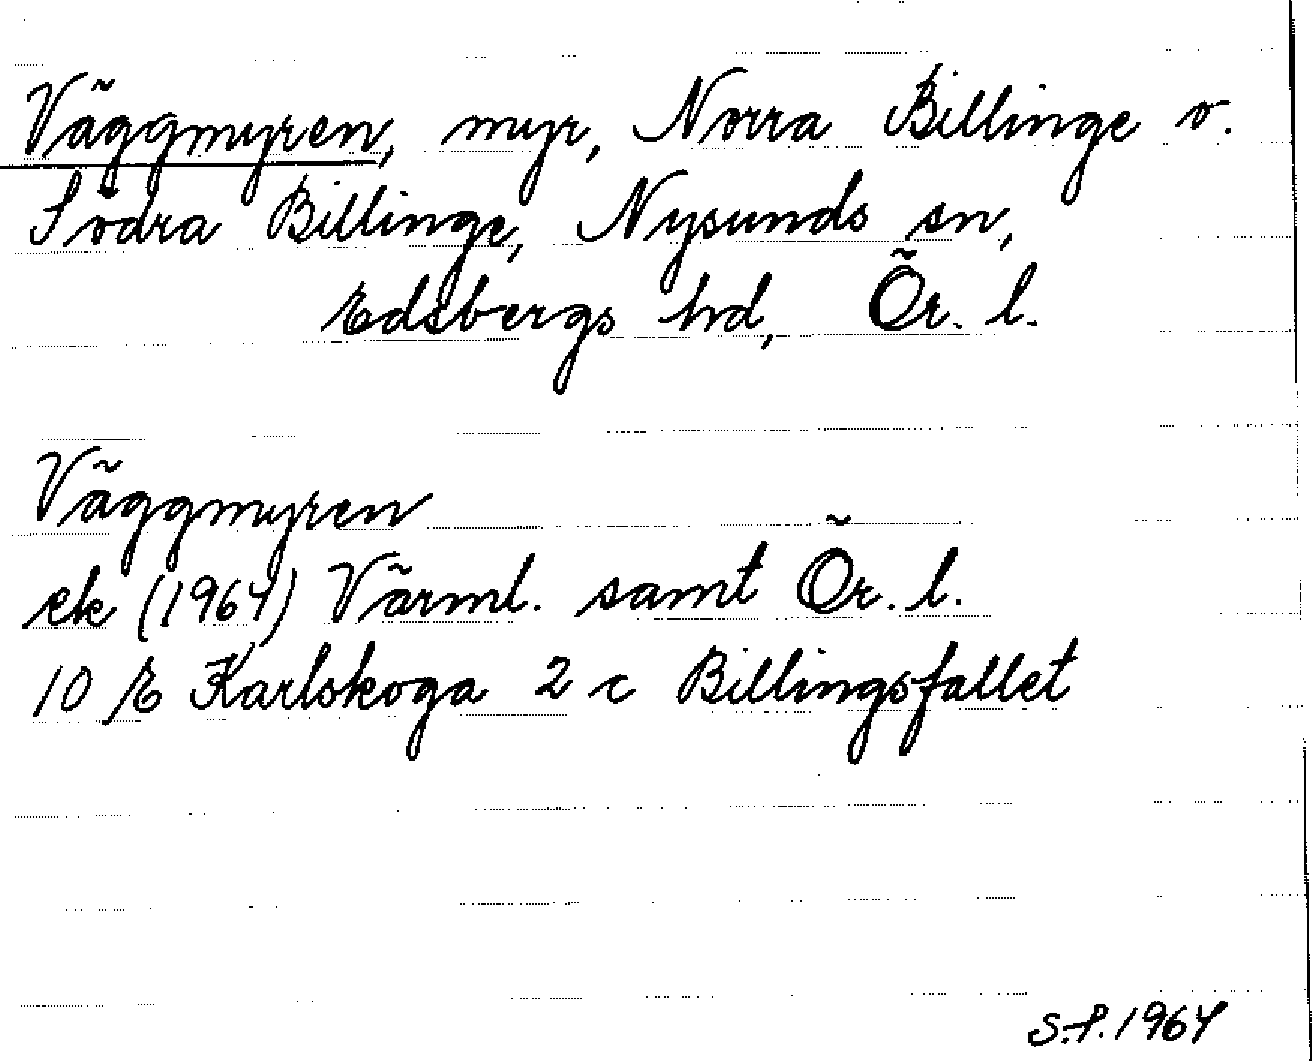 Väggmyren, myr, Norra Billinge o.
Södra Billinge, Nysunds sn,
Edsbergs hd, Ör. l.
Väggmyren
ek (1964) Värml. samt Ör. l.
10 E Karlskoga 2 c Billingsfallet
S.P. 1964